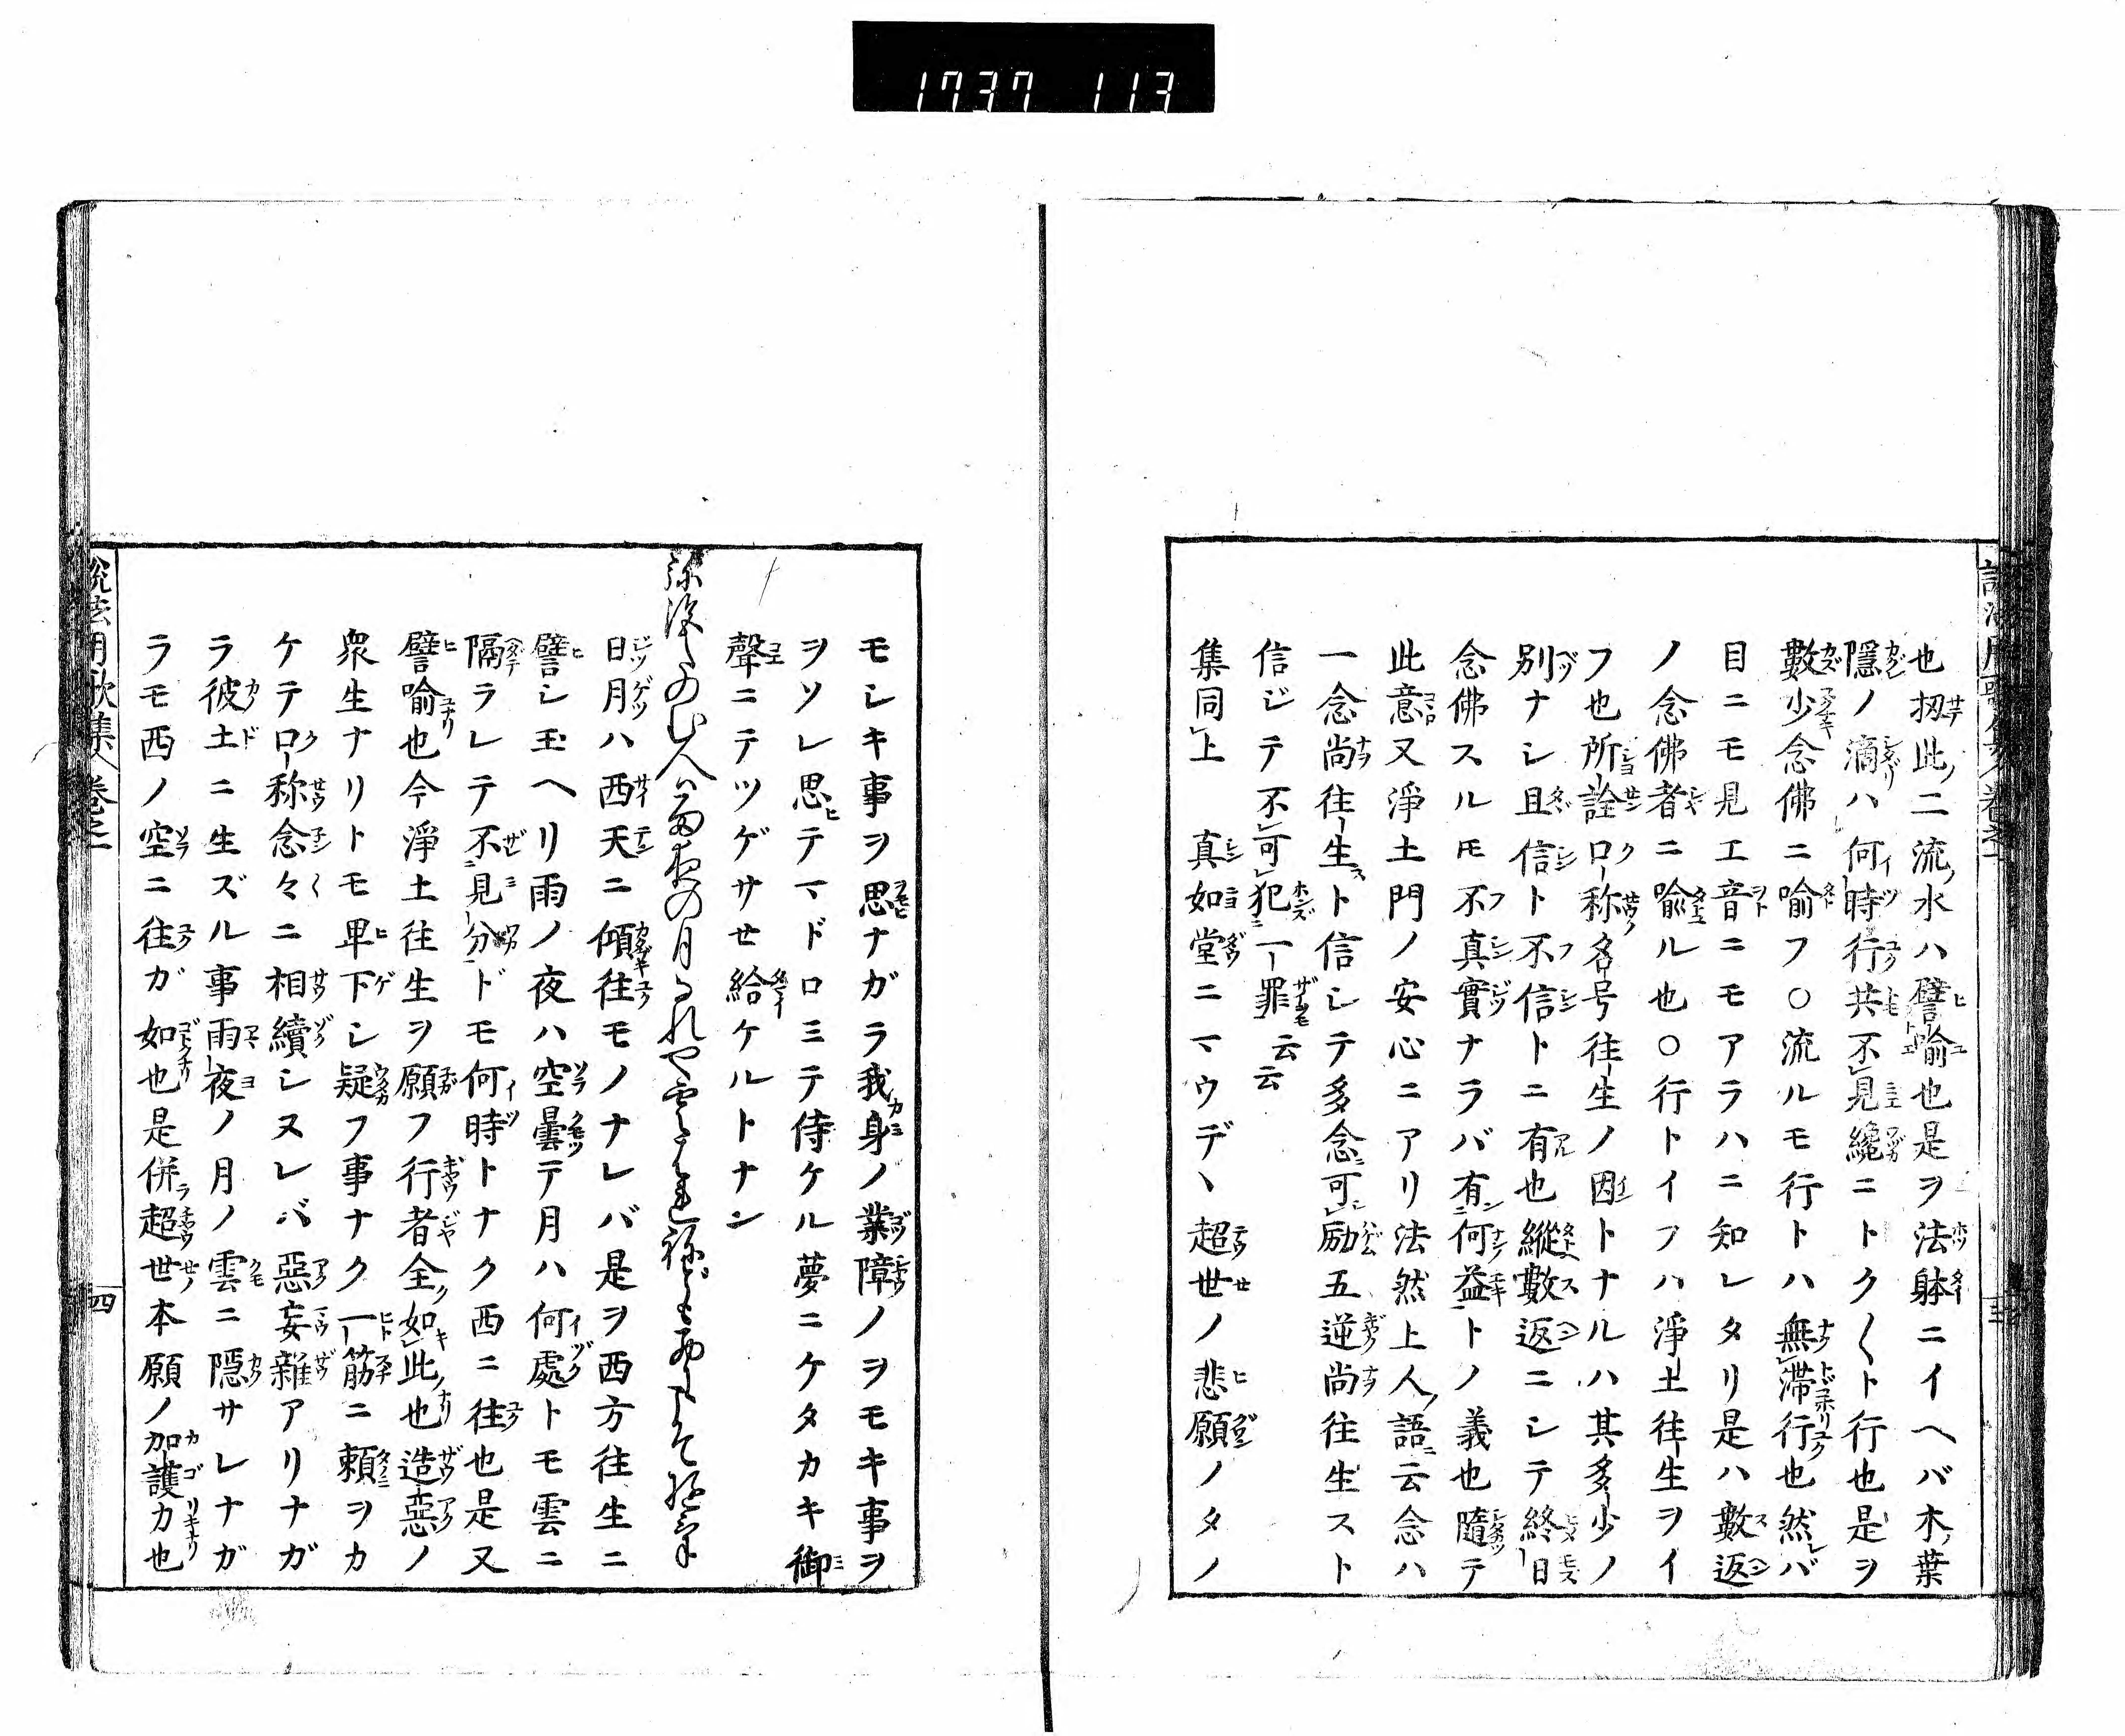 1737 113
也扨此ノ二流ノ水ハ譬喩也是ヲ法躰ニイヘバ木ノ葉
隱ノ滴ハ何時行共不見纔ニトク〱ト行也是ヲ
數少念佛ニ喩フ○流ルモ行トハ無滞行也然レバ
目ニモ見エ音ニモアラハニ知レタリ是ハ數返
ノ念佛者ニ喩ル也○行トイフハ淨土往生ヲイ
フ也所詮口称名号往生ノ因トナルハ其多少ノ
別ナシ且信ト不信トニ有也縱數返ニシテ終日
念佛スルモ不真實ナラバ有何益トノ義也隨テ
此意又淨土門ノ安心ニアリ法然上人ノ語ニ云念ハ
一念尚往生スト信シテ多念可励五逆尚往生スト
信ジテ不可犯一罪云云
集同上　真如堂ニマウデヽ超世ノ悲願ノタノ
モシキ事ヲ思ナガラ我身ノ業障ノヲモキ事ヲ
ヲソレ思ヒテマドロミテ侍ケル夢ニケタカキ御
聲ニテツゲサセ給ケルトナン
日月ハ西天ニ傾往モノナレバ是ヲ西方往生ニ
譬シ玉ヘリ雨ノ夜ハ空曇テ月ハ何處トモ雲ニ
隔ラレテ不見分ドモ何時トナク西ニ往也是又
譬喩也今淨土往生ヲ願フ行者全ク如此ノ也造惡ノ
衆生ナリトモ卑下シ疑フ事ナク一筋ニ頼ヲカ
ケテ口称念々ニ相續シヌレバ惡妄雜アリナガ
ラ彼土ニ生ズル事雨夜ノ月ノ雲ニ隠サレナガ
ラモ西ノ空ニ往ガ如也是併ラ超世ノ本願ノ加護力也
説法用歌集 卷之一
四